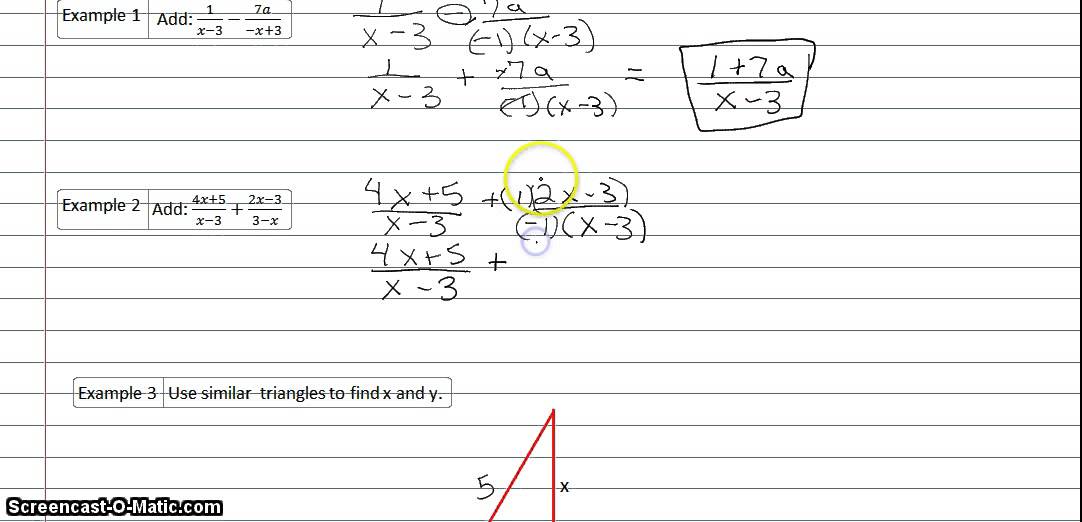 Example 1 Add: 1/(x−3) − 7a/(−x+3)
1/(x-3) - 7a/((-1)(x-3))
1/(x-3) + 7a/((-1)(x-3)) = (1+7a)/(x-3)
Example 2 Add: (4x+5)/(x−3) + (2x−3)/(3−x)
(4x+5)/(x-3) + (1)(2x-3)/((-1)(x-3))
(4x+5)/(x-3) +
Example 3 Use similar triangles to find x and y.
5 x
Screencast-O-Matic.com